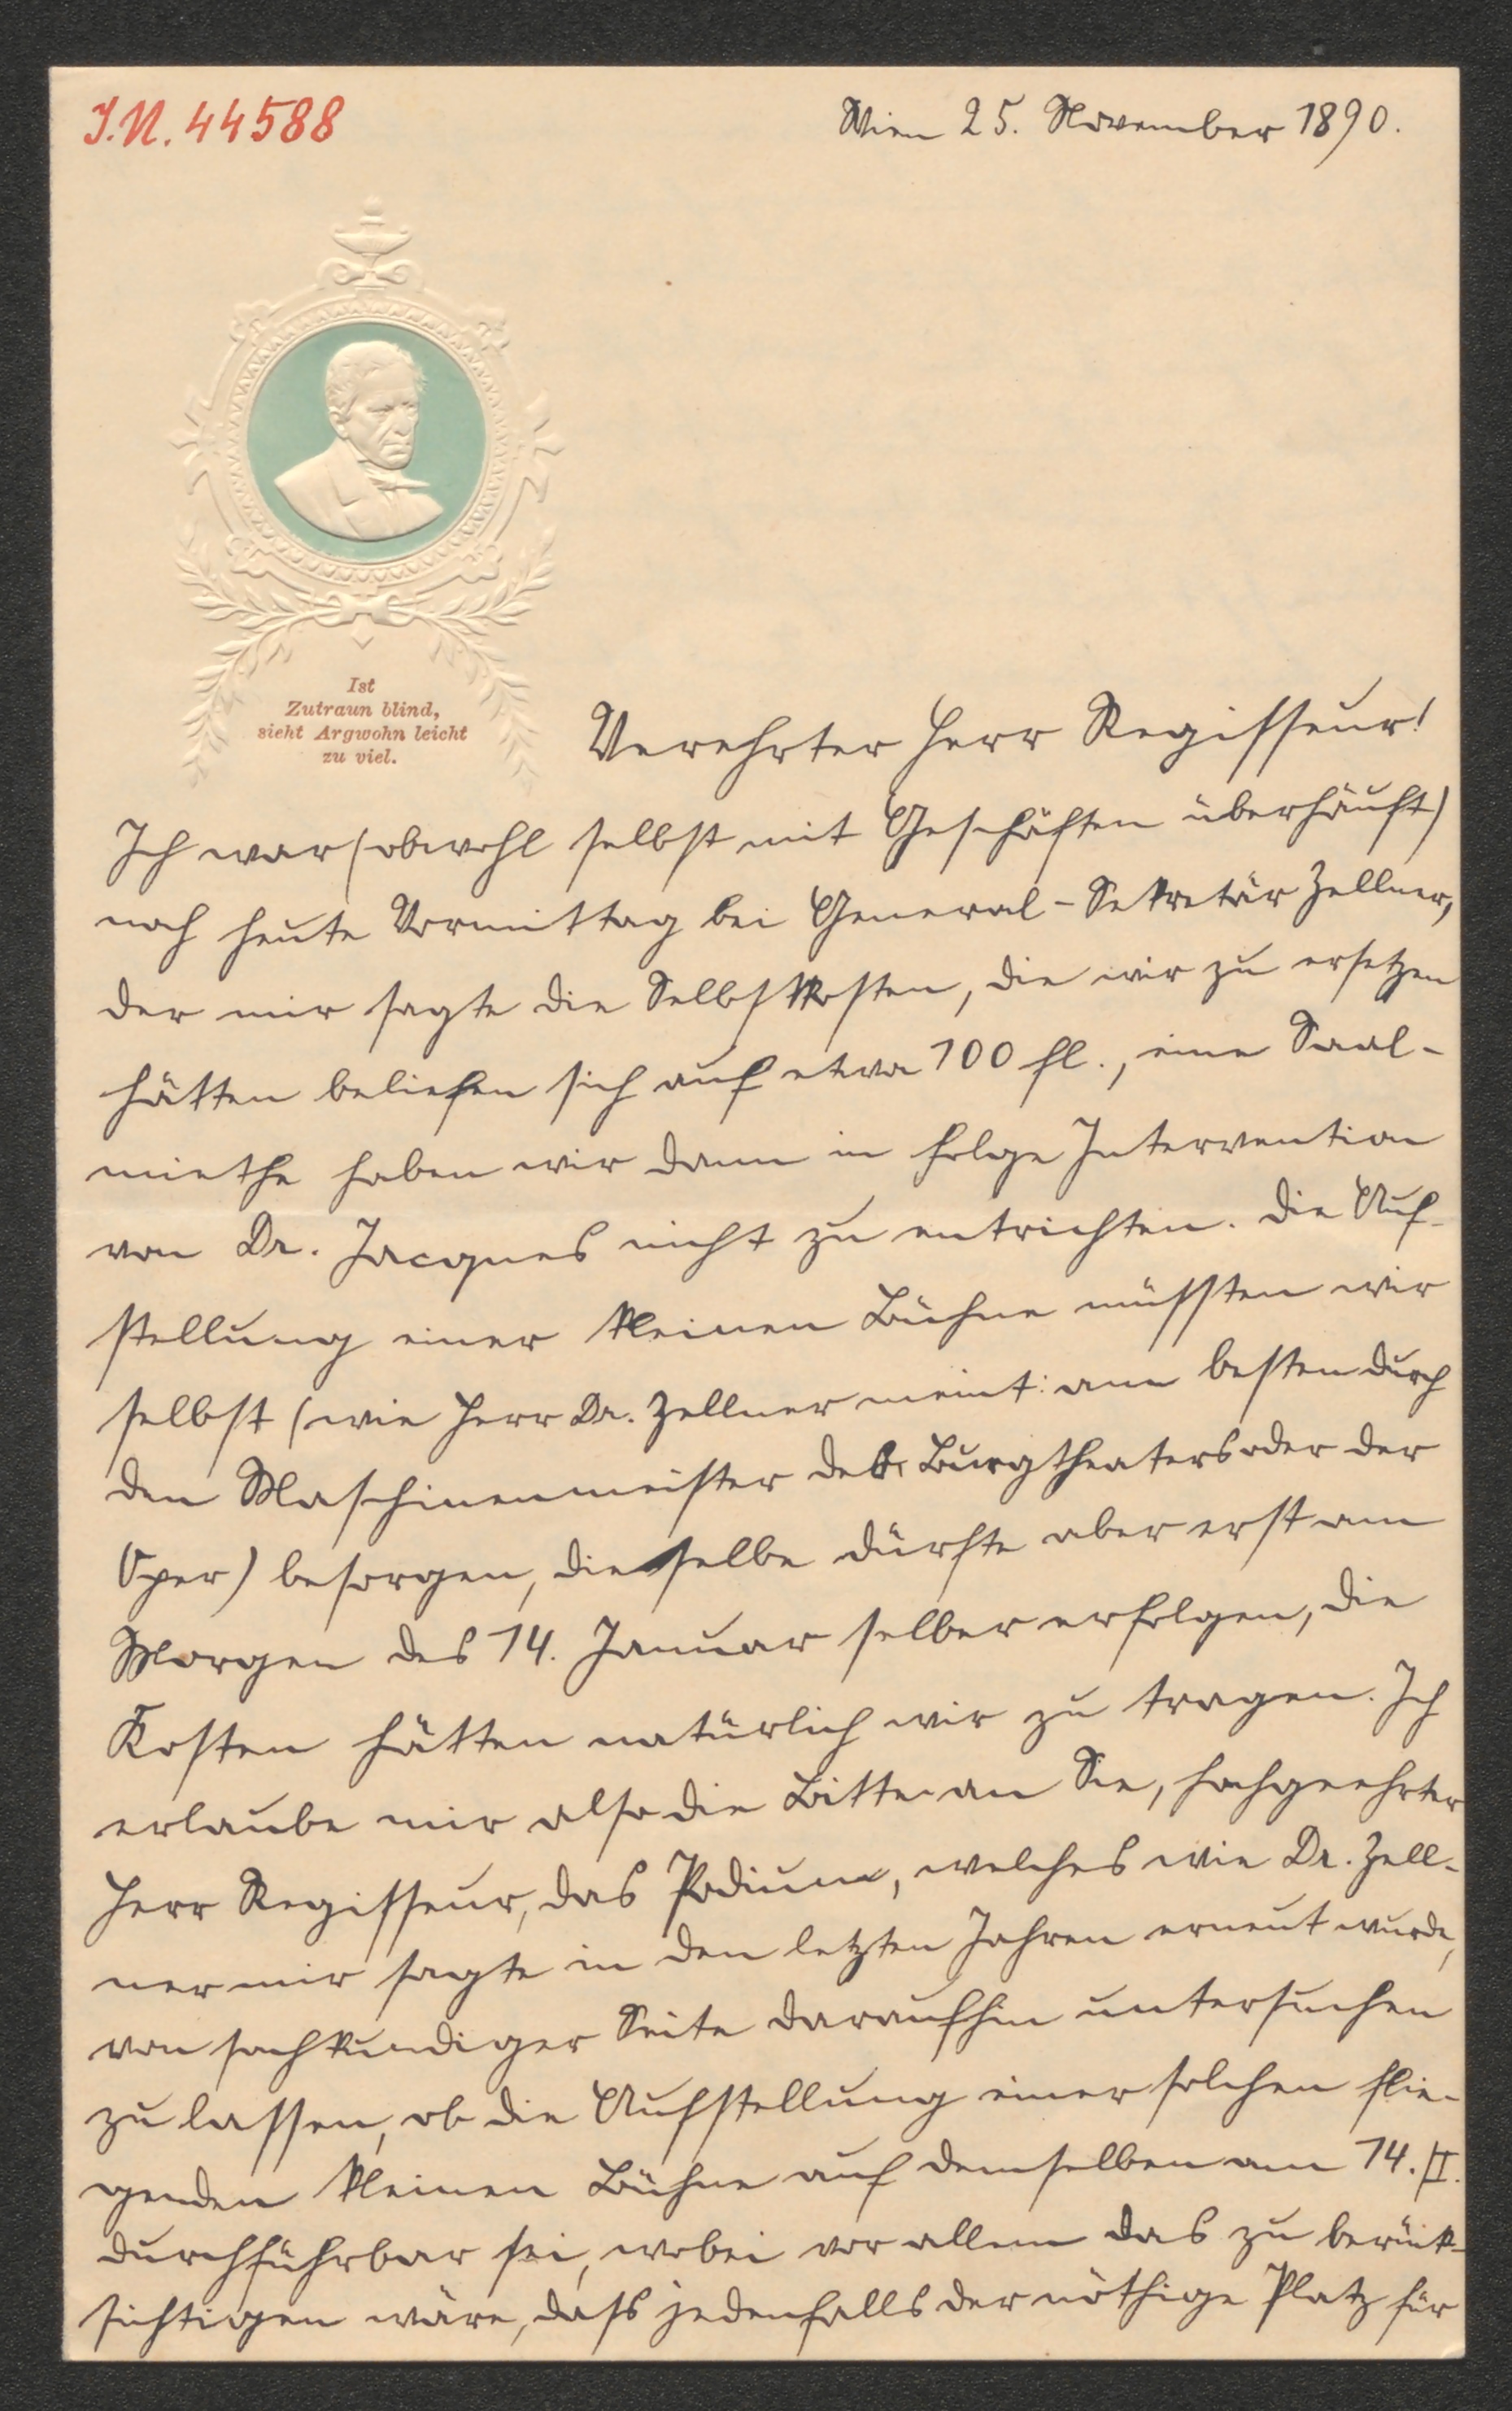 I.N. 44588
Wien 25. November 1890.
Ist
Zutraun blind,
sieht Argwohn leicht
zu viel.
Verehrter Herr Regisseur!
Ich war (obwohl selbst mit Geschäften überhäuft)
noch heute Vormittag bei General-Sekretär Zellner,
der mir sagte die Selbstkosten, die wir zu ersetzen
hätten beliefen sich auf etwa 100 fl., eine Saal-
miethe haben wir dann in Folge Intervention
von Dr. Jacques nicht zu entrichten. Die Auf-
stellung einer kleinen Bühne müssten wir
selbst (wie Herr Dr. Zellner meint: am besten durch
den Maschinenmeister des Burgtheaters oder der
Oper) besorgen, dieselbe dürfte aber erst am
Morgen des 14. Januar selber erfolgen, die
Kosten hätten natürlich wir zu tragen. Ich
erlaube mir also die Bitte an Sie, hochgeehrter
Herr Regisseur, das Podium, welches wie Dr. Zell-
ner mir sagte in den letzten Jahren erneut wurde,
von sachkundiger Seite daraufhin untersuchen
zu lassen, ob die Aufstellung einer solchen flie-
genden kleinen Bühne auf demselben am 14./I.
durchführbar sei, wobei vor allem das zu berück-
sichtigen wäre, dass jedenfalls der nöthige Platz für